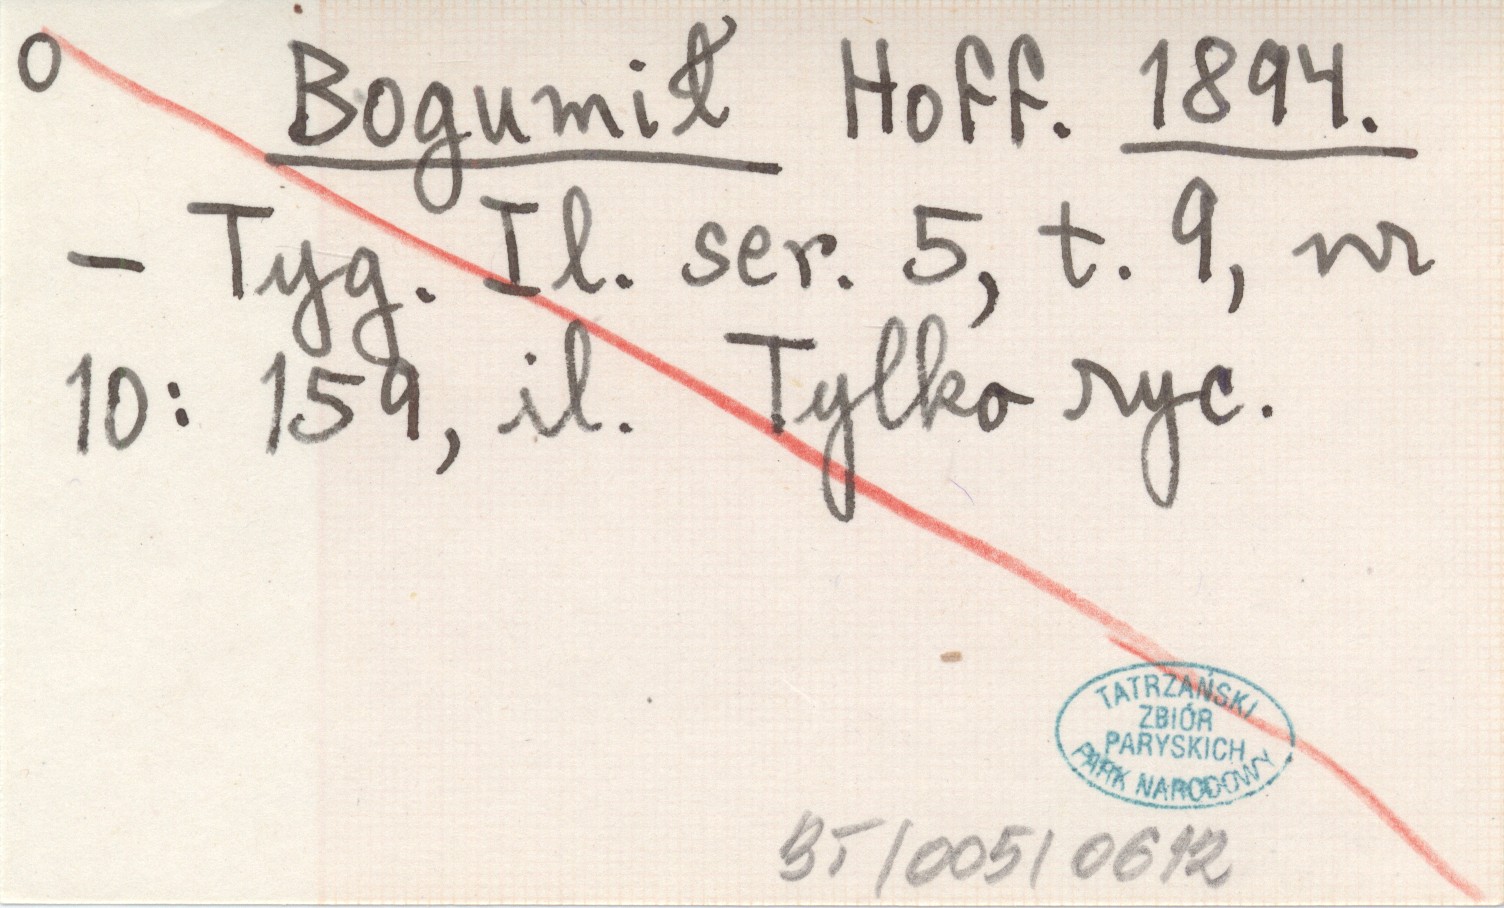 O Bogumił Hoff. 1894.
– Tyg. Il. ser. 5, t. 9, nr
10: 159, il. Tylko ryc.
TATRZAŃSKI
ZBIÓR
PARYSKICH
PARK NARODOWY
BT/005/0612